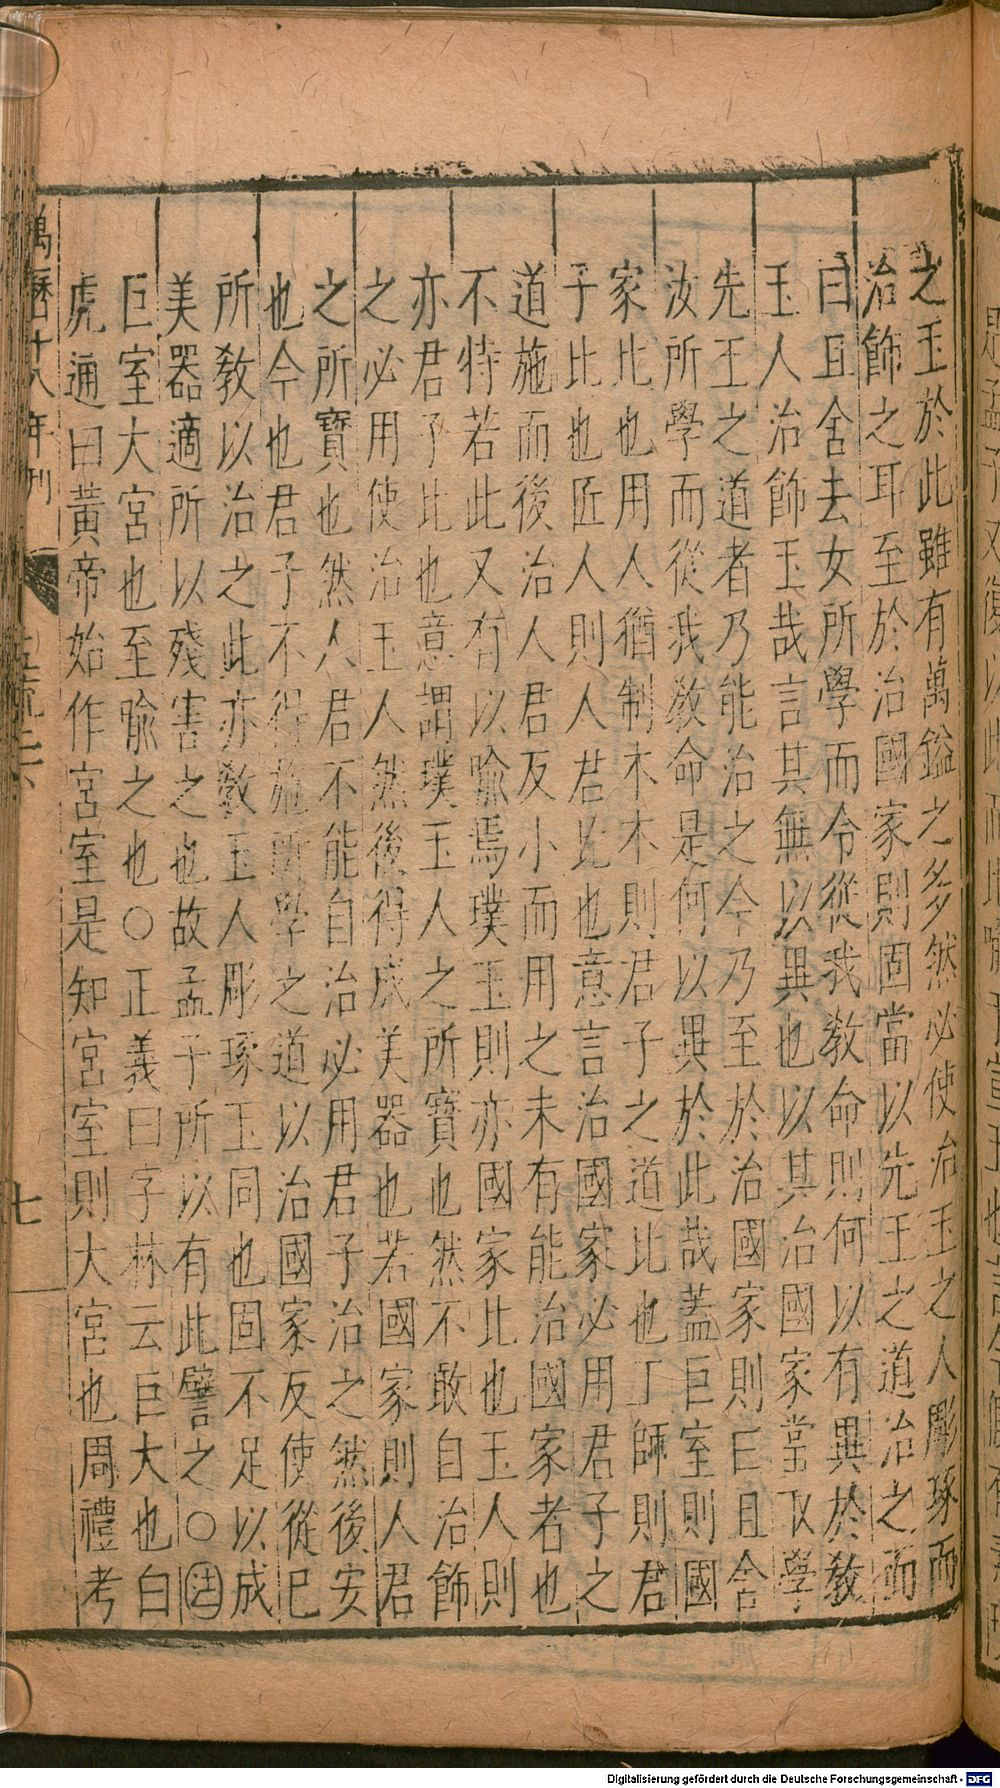 之玉於此雖有萬鎰之多然必使治玉之人彫琢而
治飾之耳至於治國家則固當以先王之道治之而
曰且舍去女所學而令從我教命則何以有異於教
玉人治飾玉哉言其無以異也以其治國家當取學
先王之道者乃能治之今乃至於治國家則曰且舍
汝所學而從我教命是何以異於此哉蓋巨室則國
家比也用人猶制木木則君子之道比也工師則君
子比也匠人則人君比也意言治國家必用君子之
道施而後治人君反小而用之未有能治國家者也
不特若此又有以喻焉璞玉則亦國家比也玉人則
亦君子比也意謂璞玉人之所寶也然不敢自治飾
之必用使治玉人然後得成美器也若國家則人君
之所寶也然人君不能自治必用君子治之然後安
也今也君子不得施所學之道以治國家反使從已
所教以治之此亦教玉人彫琢玉同也固不足以成
美器適所以殘害之也故孟子所以有此譬之○注
巨室大宮也至喻之也○正義曰字林云巨大也白
虎通曰黃帝始作宮室是知宮室則大宮也周禮考
萬曆十八年刊
七
Digitalisierung gefördert durch die Deutsche Forschungsgemeinschaft - DFG